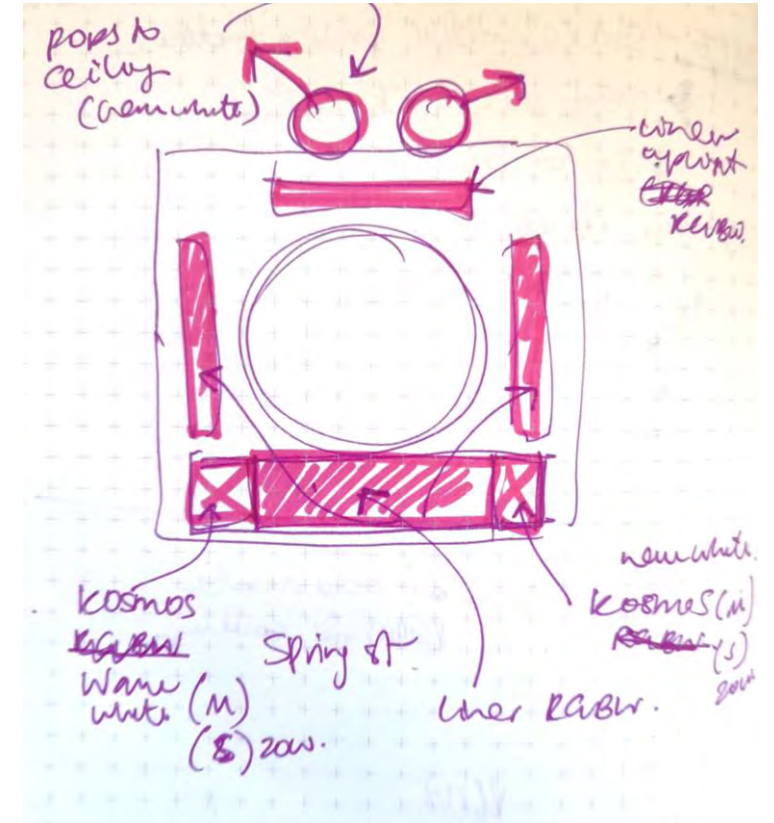 pops to
ceiling
(warm white)
Liner
uplight
RGBW.
warm white.
Kosmos (M)
RGBW (S)
20w
Kosmos
RGBW
Warm
white (M)
(S) 20w.
Spring st
Liner RGBW.